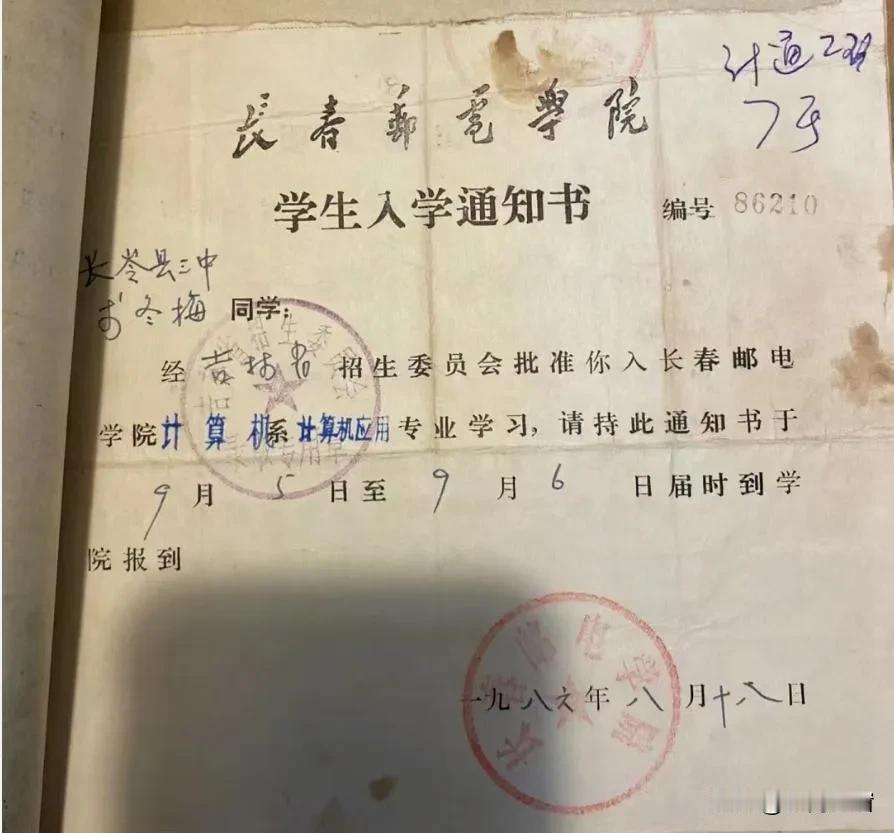 长春郵電學院
学生入学通知书 编号 86210
长岭县三中
冬梅 同学：
经 吉林省 招生委员会批准你入长春邮电
学院 计算机 系 计算机应用 专业学习，请持此通知书于
9 月 5 日至 9 月 6 日届时到学
院报到
一九八六年 八 月 十八 日
长春邮电学院